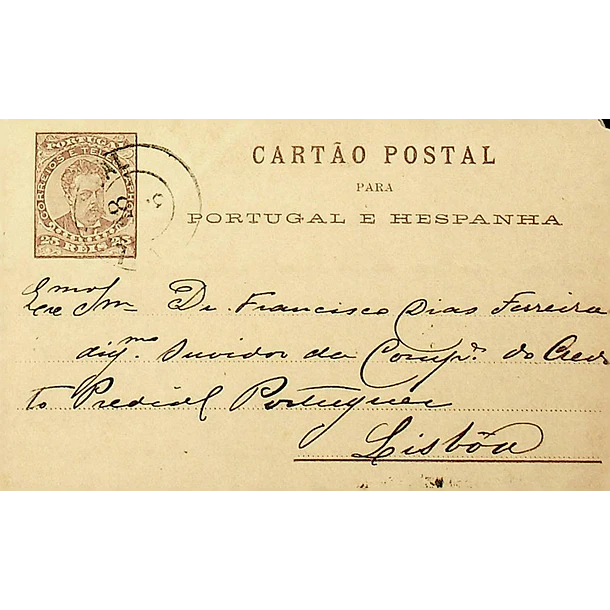 PORTUGAL
CORREIOS E TELEGRAPHOS
25 REIS 25
CARTÃO POSTAL
PARA
PORTUGAL E HESPANHA
Exmo Snr Dr. Francisco Dias Ferreira
digmo Ouvidor da Compª do Credi
to Predial Portuguez
Lisbôa